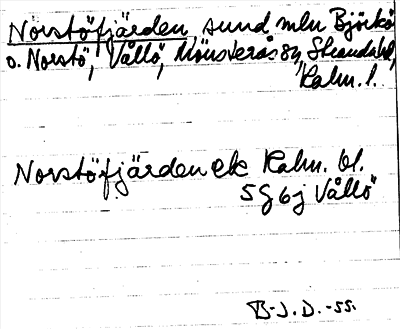 Norstöfjärden, sund mln Björkö
o. Norstö, Vållö, Mönsterås sn, Strandahd,
Kalm. l.
Norstöfjärden ek Kalm. bl.
5 G 6j Vållö
B-J. D. -55.